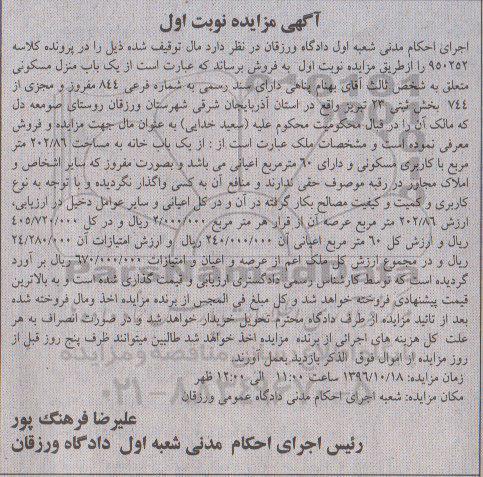 آگهی مزایده نوبت اول
اجرای احکام مدنی شعبه اول دادگاه ورزقان در نظر دارد مال توقیف شده ذیل را در پرونده کلاسه
۹۵۰۲۵۲ را ازطریق مزایده نوبت اول به فروش برساند که عبارت است از یک باب منزل مسکونی
متعلق به شخص ثالث آقای بهنام پناهی دارای سند رسمی به شماره فرعی ۸۴۴ مفروز و مجزی از
۷۴۴ بخش ثبتی ۲۳ تبریز واقع در استان آذربایجان شرقی شهرستان ورزقان روستای صومعه دل
که مالک آن را در قبال محکومیت محکوم علیه (سعید خدایی) به عنوان مال جهت مزایده و فروش
معرفی نموده است و مشخصات ملک عبارت است از : از یک باب خانه به مساحت ۲۰۲/۸۶ متر
مربع با کاربری مسکونی و دارای ۶۰ مترمربع اعیانی می باشد و بصورت مفروز که سایر اشخاص و
املاک مجاور در رقبه موصوف حقی ندارند و منافع آن به کسی واگذار نگردیده و با توجه به نوع
کاربری و کمیت و کیفیت مصالح بکار گرفته در آن و در کل اعیانی و سایر عوامل دخیل در ارزیابی،
ارزش ۲۰۲/۸۶ متر مربع عرصه آن از قرار هر متر مربع ۲/۰۰۰/۰۰۰ ریال و در کل ۴۰۵/۷۲۰/۰۰۰
ریال و ارزش کل ۶۰ متر مربع اعیانی آن ۲۴۰/۰۰۰/۰۰۰ ریال و ارزش امتیازات آن ۲۴/۲۸۰/۰۰۰
ریال و در مجموع ارزش کل ملک اعم از عرصه و اعیان و امتیازات ۶۷۰/۰۰۰/۰۰۰ ریال بر آورد
گردیده است که توسط کارشناس رسمی دادگستری ارزیابی و قیمت گذاری شده است و به بالاترین
قیمت پیشنهادی فروخته خواهد شد و کل مبلغ فی المجلس از برنده مزایده اخذ ومال فروخته شده
بعد از تائید مزایده از طرف دادگاه محترم تحویل خریدار خواهد شد و در صورات انصراف به هر
علت کل هزینه های اجرائی از برنده مزایده اخذ خواهد شد طالبین میتوانند ظرف پنج روز قبل از
روز مزایده از اموال فوق الذکر بازدید بعمل آورند
زمان مزایده: ۱۳۹۶/۱۰/۱۸ ساعت ۱۱:۰۰ الی ۱۲:۰۰ ظهر
مکان مزایده: شعبه اجرای احکام مدنی دادگاه عمومی ورزقان
علیرضا فرهنگ پور
رئیس اجرای احکام مدنی شعبه اول دادگاه ورزقان
ParsNamadData